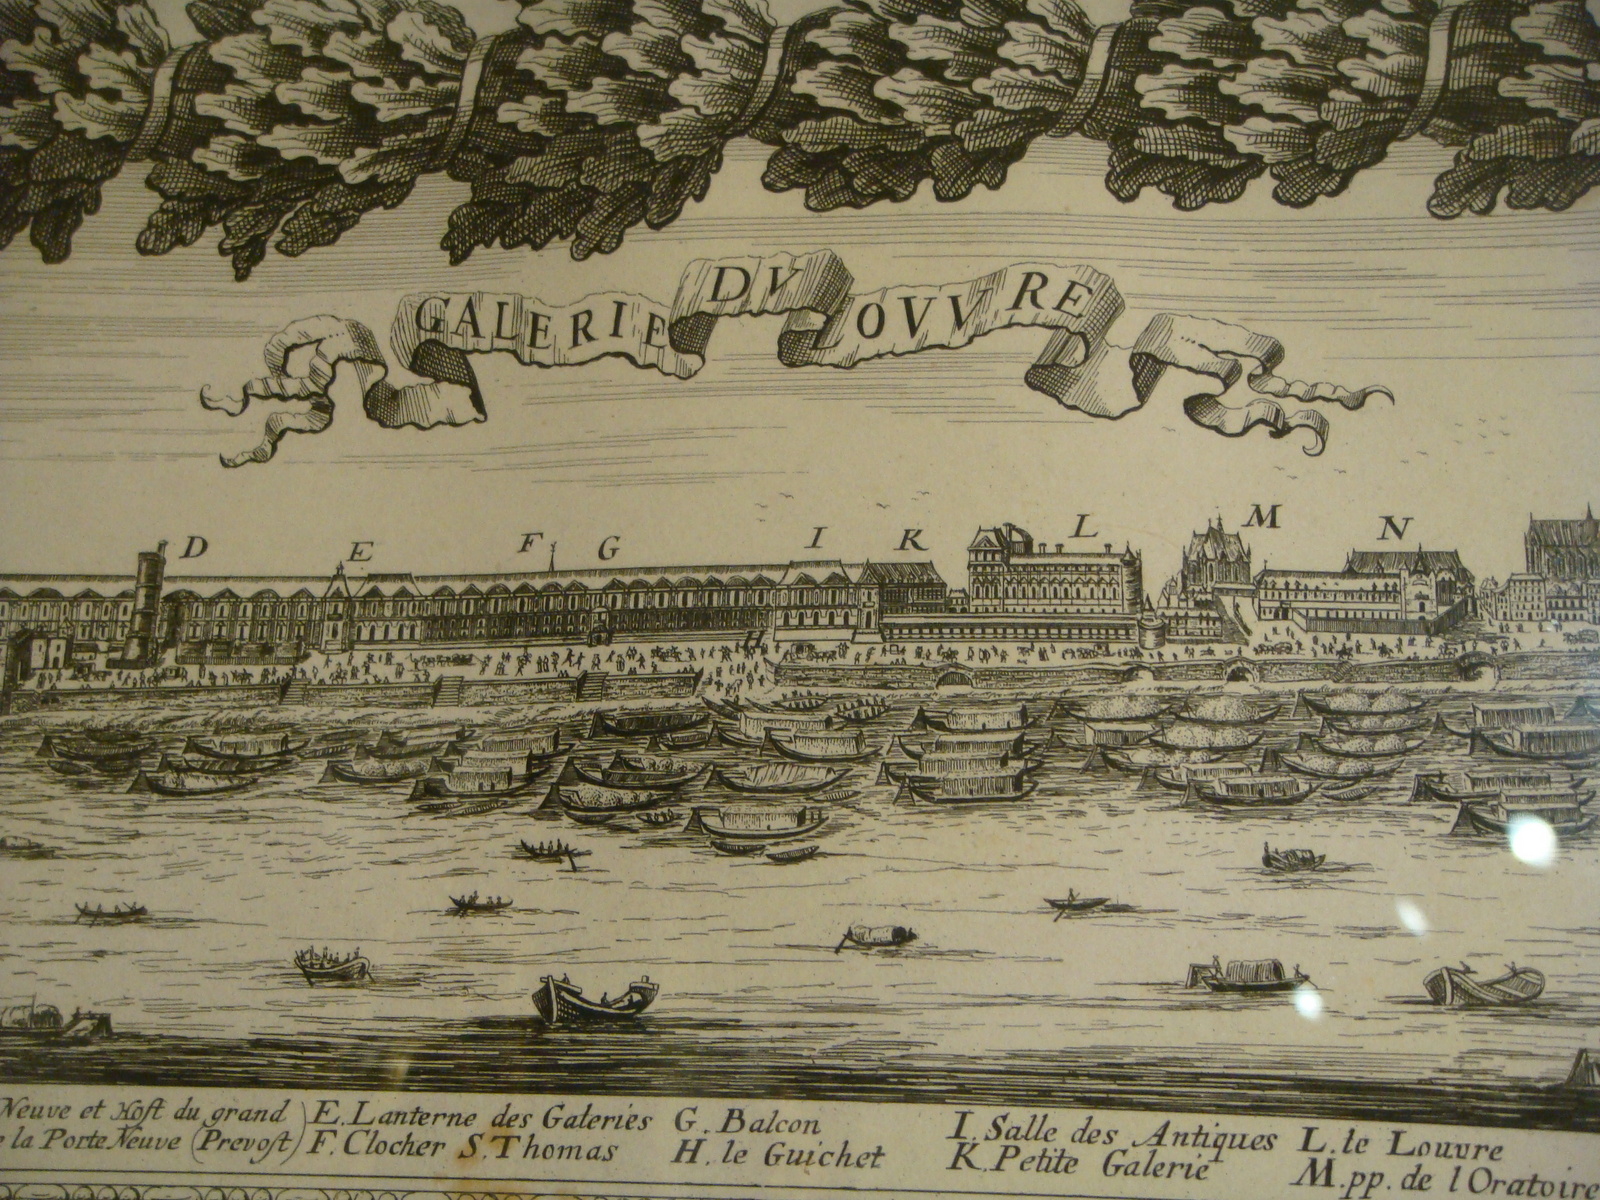 GALERIE DV LOVVRE
D E F G I K L M N
H
Neuve et Host du grand
la Porte Neuve (Prevost)
E. Lanterne des Galeries
F. Clocher S. Thomas
G. Balcon
H. le Guichet
I. Salle des Antiques
K. Petite Galerie
L. le Louvre
M. pp. de l'Oratoire